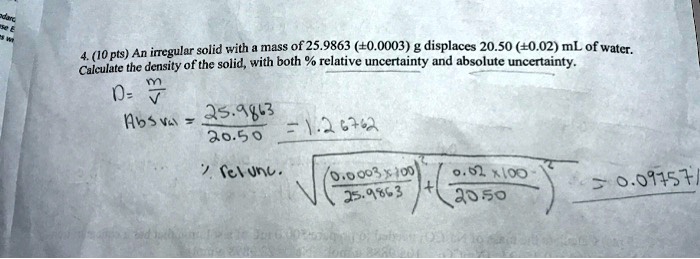 4. (10 pts) An irregular solid with a mass of 25.9863 (±0.0003) g displaces 20.50 (±0.02) mL of water.
Calculate the density of the solid, with both % relative uncertainty and absolute uncertainty.
D = m/V
Abs val = 25.9863/20.50 = 1.26762
% rel unc. √((0.0003x100/25.9863)² + (0.02 x100/20.50)²) = 0.09757